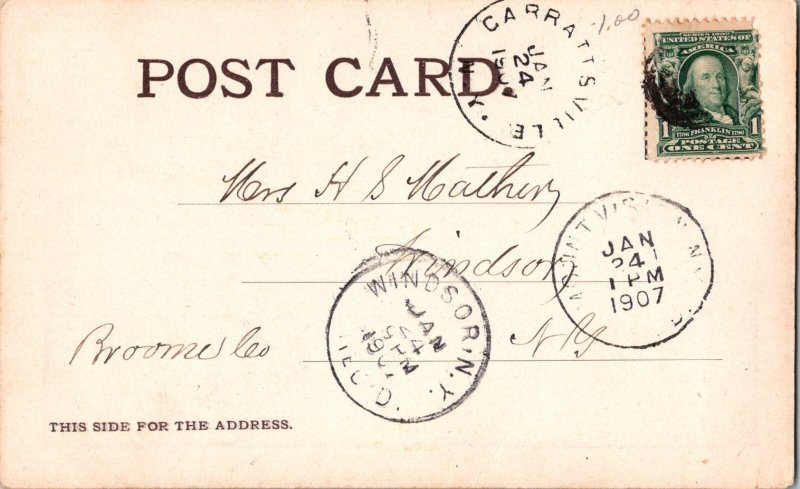 -1.00
GARRATTSVILLE N.Y.
JAN
24
1907
SERIES 1902
UNITED STATES OF
AMERICA
1706 FRANKLIN 1790
1 POSTAGE 1
ONE CENT
POST CARD.
Mrs H S Mathery
Windsor
JAN
24
1 PM
1907
WINDSOR, N.Y.
JAN
24
9 PM
1907
REC'D.
Broome Co
N Y
THIS SIDE FOR THE ADDRESS.